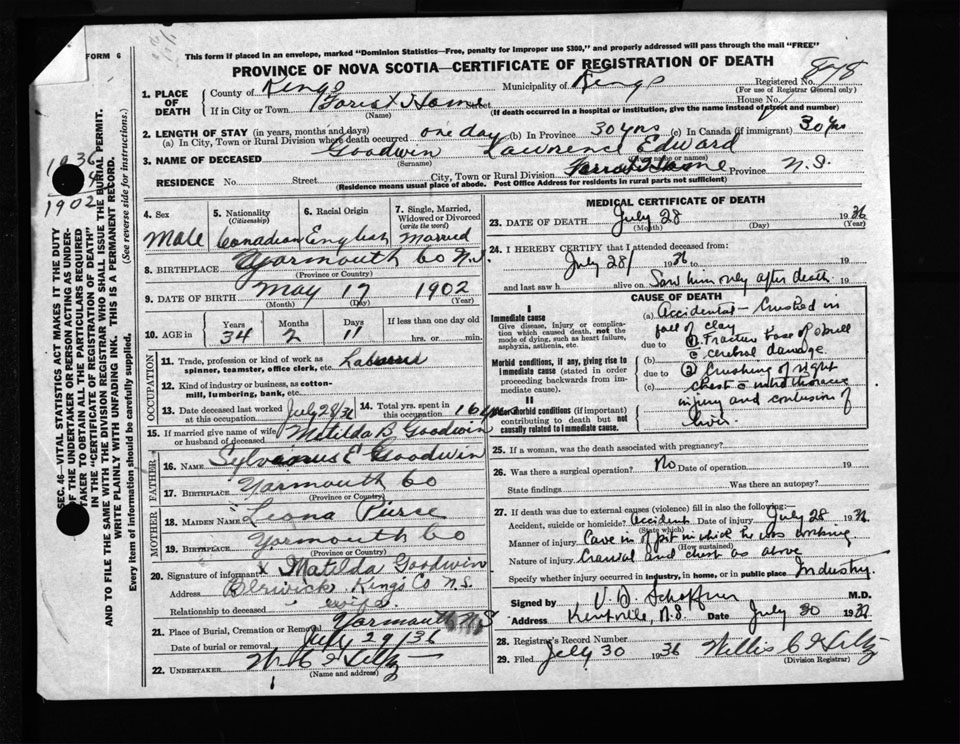 FORM 6
This form if placed in an envelope, marked "Dominion Statistics—Free, penalty for improper use $300," and properly addressed will pass through the mail "FREE"
PROVINCE OF NOVA SCOTIA—CERTIFICATE OF REGISTRATION OF DEATH
Registered No. 878
(For use of Registrar General only)
1. PLACE OF DEATH
County of Kings
Municipality of Kings
If in City or Town Street House No.
(Name) (If death occurred in a hospital or institution, give name instead of street and number)
2. LENGTH OF STAY (in years, months and days)
(a) In City, Town or Rural Division where death occurred one day (b) In Province 30 yrs (c) In Canada (if immigrant) 30 yrs
3. NAME OF DECEASED Goodwin Lawrence Edward
(Surname) (Given name or names)
RESIDENCE No. Street City, Town or Rural Division Province N.S.
(Residence means usual place of abode. Post Office Address for residents in rural parts not sufficient)
4. Sex Male
5. Nationality (Citizenship) Canadian
6. Racial Origin English
7. Single, Married, Widowed or Divorced (write the word) Married
8. BIRTHPLACE Yarmouth Co N.S.
(Province or Country)
9. DATE OF BIRTH May 17 1902
(Month) (Day) (Year)
10. AGE in Years Months Days If less than one day old
34 2 11 hrs. or min.
OCCUPATION
11. Trade, profession or kind of work as spinner, teamster, office clerk, etc.
12. Kind of industry or business, as cotton-mill, lumbering, bank, etc.
13. Date deceased last worked at this occupation July 28/36
14. Total yrs. spent in this occupation 16 yrs
15. If married give name of wife or husband of deceased Matilda B Goodwin
FATHER
16. NAME Sylvanus E Goodwin
17. BIRTHPLACE Yarmouth Co
(Province or Country)
MOTHER
18. MAIDEN NAME Leona Pierce
19. BIRTHPLACE Yarmouth Co
(Province or Country)
20. Signature of informant X Matilda Goodwin
Address Berwick Kings Co N.S.
Relationship to deceased wife
21. Place of Burial, Cremation or Removal Yarmouth N S
Date of burial or removal July 29/36
22. UNDERTAKER W C Hiltz
(Name and address)
MEDICAL CERTIFICATE OF DEATH
23. DATE OF DEATH July 28 1936
(Month) (Day) (Year)
24. I HEREBY CERTIFY that I attended deceased from:
July 28/ 1936 to 19
and last saw h alive on Saw him only after death 19
CAUSE OF DEATH
I
Immediate cause
Give disease, injury or complication which caused death, not the mode of dying, such as heart failure, asphyxia, asthenia, etc.
(a) Accidental — Crushed in fall of clay
due to (1) Fracture base of skull & cerebral damage
Morbid conditions, if any, giving rise to immediate cause (stated in order proceeding backwards from immediate cause).
(b)
due to (2) Crushing of right
(c) chest
injury and contusion of liver.
II
Other morbid conditions (if important) contributing to death but not causally related to immediate cause.
25. If a woman, was the death associated with pregnancy?
26. Was there a surgical operation? No Date of operation 19
State findings Was there an autopsy?
27. If death was due to external causes (violence) fill in also the following:—
Accident, suicide or homicide? Accident Date of injury July 28 1936
(State which)
Manner of injury Cave in of pit in which he was working.
(How sustained)
Nature of injury Cranial and chest as above
Specify whether injury occurred in industry, in home, or in public place Industry.
Signed by M.D.
Address Kentville, N.S. July 30 1936
28. Registrar's Record Number
29. Filed July 30 1936 Willis C Hiltz
(Division Registrar)
1936
1902
SEC. 46—VITAL STATISTICS ACT MAKES IT THE DUTY OF THE UNDERTAKER OR PERSON ACTING AS UNDERTAKER TO OBTAIN ALL THE PARTICULARS REQUIRED IN THE "CERTIFICATE OF REGISTRATION OF DEATH" AND TO FILE THE SAME WITH THE DIVISION REGISTRAR WHO SHALL ISSUE THE BURIAL PERMIT.
WRITE PLAINLY WITH UNFADING INK. THIS IS A PERMANENT RECORD.
Every item of information should be carefully supplied. (See reverse side for instructions.)